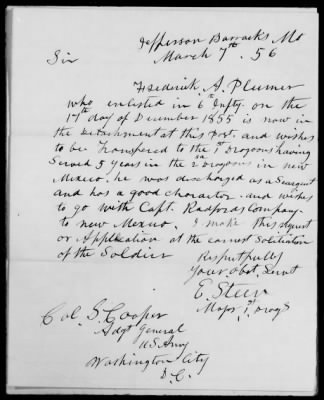 Jefferson Barracks Mo
March 7th. 56
Sir
Frederick A. Plumer
who enlisted in 6th Infty. on the
17th day of December 1855 is now in
the Detachment at this Post, and wishes
to be Transfered to the 1st Dragoons having
Served 5 years in the 2d Dragoons in new
Mexico. he was discharged as a Sergeant
and has a good charactor. and wishes
to go with Capt. Radfords Company
to new Mexico. I make this request
or Application at the earnest Solicitation
of the Soldier
Respectfully
Your obot. Servt
E. Steen
Major 1st Drags
Col. S. Cooper
Adgt General
U S Army
Washington City
D. C.